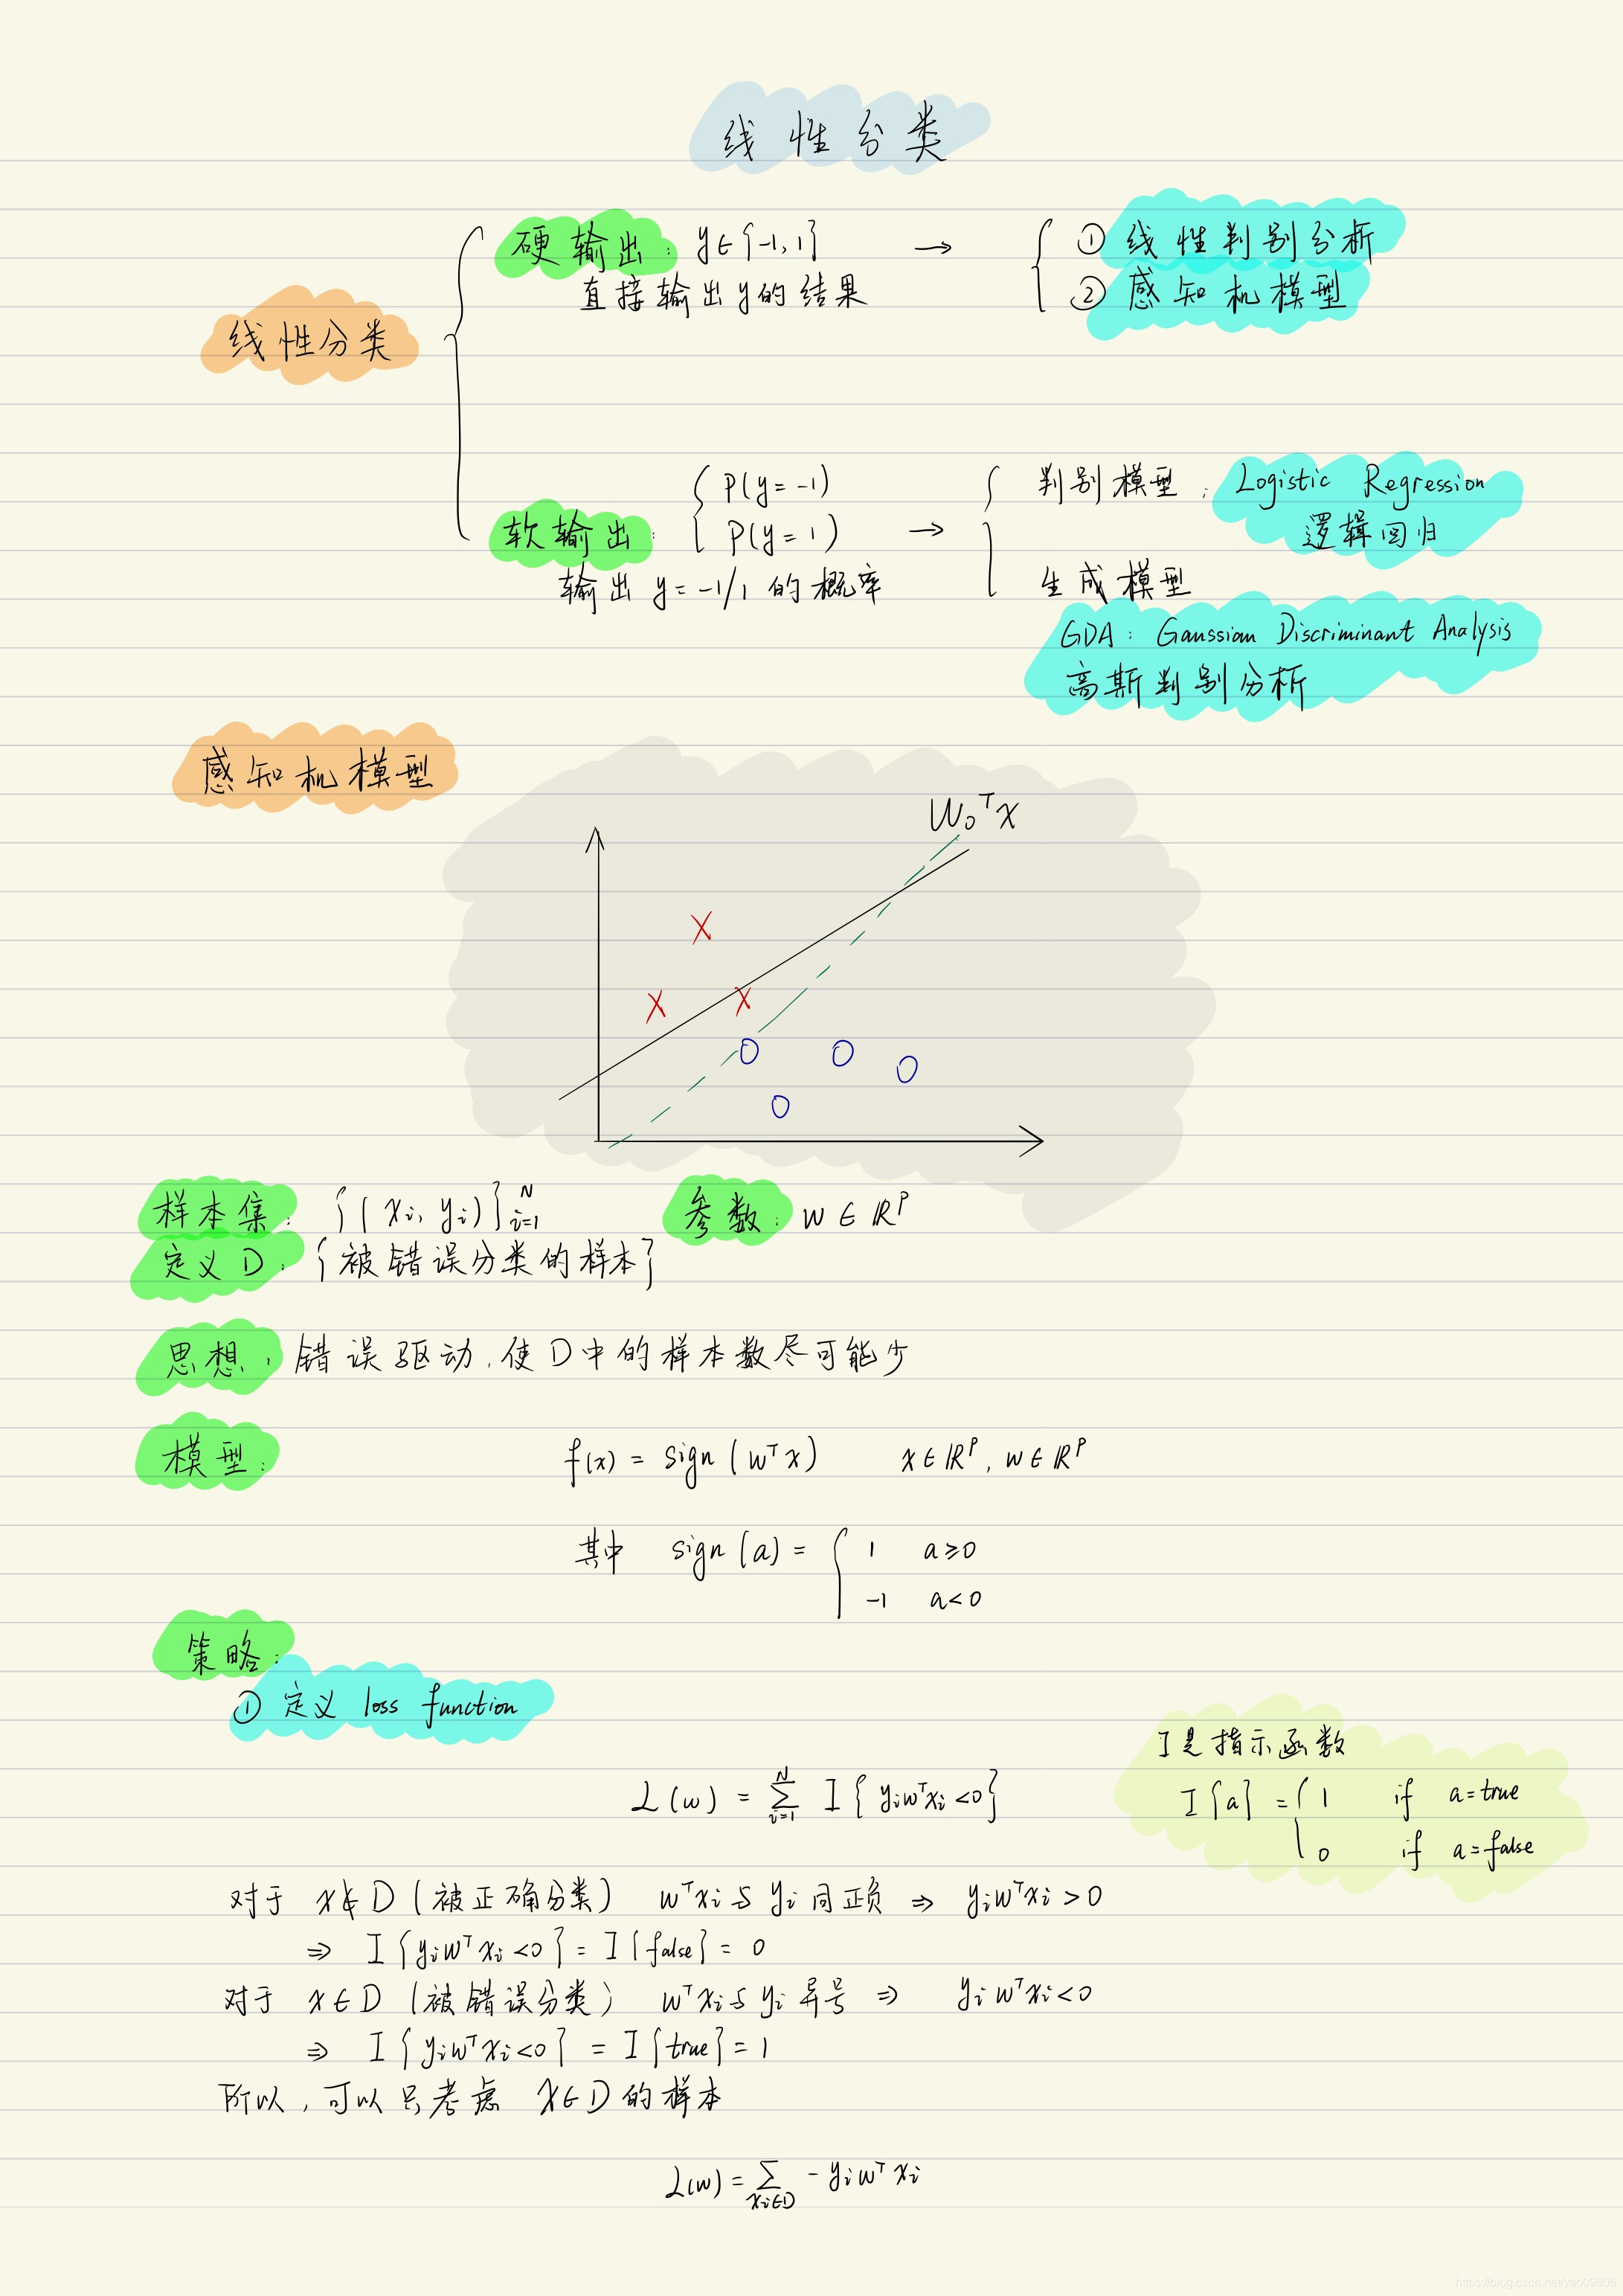 线性分类
硬输出: y∈{-1,1} → ① 线性判别分析
直接输出y的结果 ② 感知机模型
线性分类
P(y=-1) 判别模型: Logistic Regression
软输出: P(y=1) → 逻辑回归
输出 y=-1/1 的概率 生成模型
GDA: Gaussian Discriminant Analysis
高斯判别分析
感知机模型
W₀ᵀx
样本集: {(xᵢ, yᵢ)}ᵢ₌₁ᴺ 参数: w∈ℝᵖ
定义D: {被错误分类的样本}
思想: 错误驱动,使D中的样本数尽可能少
模型: f(x) = sign(wᵀx) x∈ℝᵖ, w∈ℝᵖ
其中 sign(a) = { 1 a≥0
-1 a<0
策略:
① 定义 loss function
I是指示函数
L(w) = ∑ᵢ₌₁ᴺ I{yᵢwᵀxᵢ<0} I{a} = { 1 if a=true
0 if a=false
对于 x∉D (被正确分类) wᵀxᵢ与yᵢ同正负 ⇒ yᵢwᵀxᵢ>0
⇒ I{yᵢwᵀxᵢ<0} = I{false} = 0
对于 x∈D (被错误分类) wᵀxᵢ与yᵢ异号 ⇒ yᵢwᵀxᵢ<0
⇒ I{yᵢwᵀxᵢ<0} = I{true} = 1
所以,可以只考虑 x∈D的样本
L(w) = ∑_{xᵢ∈D} -yᵢwᵀxᵢ
https://blog.csdn.net/yao09605